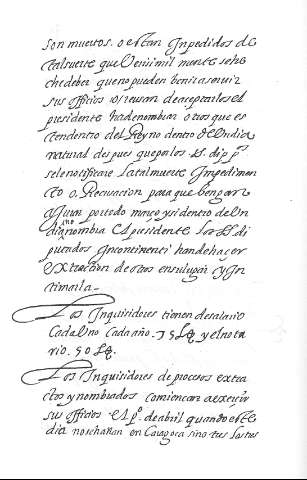 son muertos. o estan Inpedidos de
tal suerte que Verisimil mente se ha
che deber que no pueden benir a seruir
sus officios 10/ reusan de aceptarlos el
presidente ha de nombrar otros que es
ten dentro del Reyno dentro de Un dia
natural despues que por los ss. dip.
sele notificare la tal muerte Inpedimen
to o. Recusacion para que bengan
a Jurar por todo março y si dentro de Un
dia no nombra el presidente los ss. di
putados Incontinenti han de hacer
extraction de otros en su lugar y In
timarla
Los Inquisidores tienen de salario
Cada Uno Cada año. 75 L y el nota
rio. 50 L.
Los Inquisidores de procesos extra
ctos y nombrados comiençan a exercir
sus officios el p.º de abril quando este
dia no se hallan en Caragoça sino tres los tres